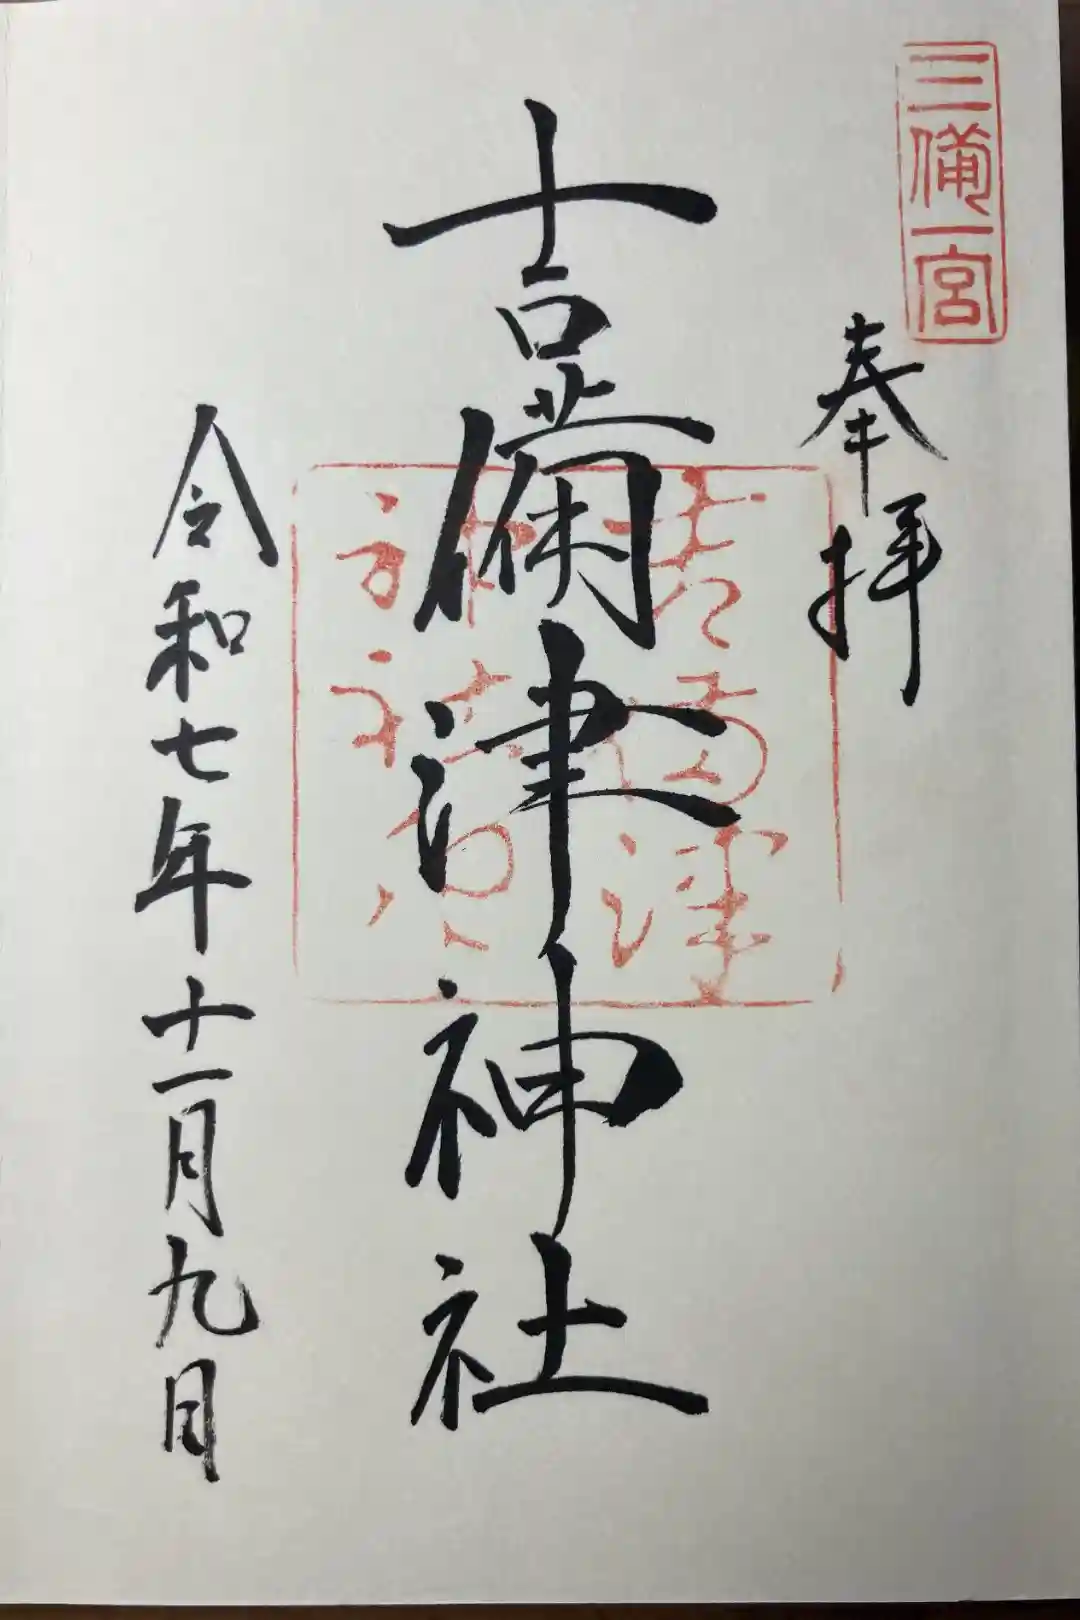 三備一宮
奉拝
吉備津神社
吉備津
神社
令和七年十一月九日